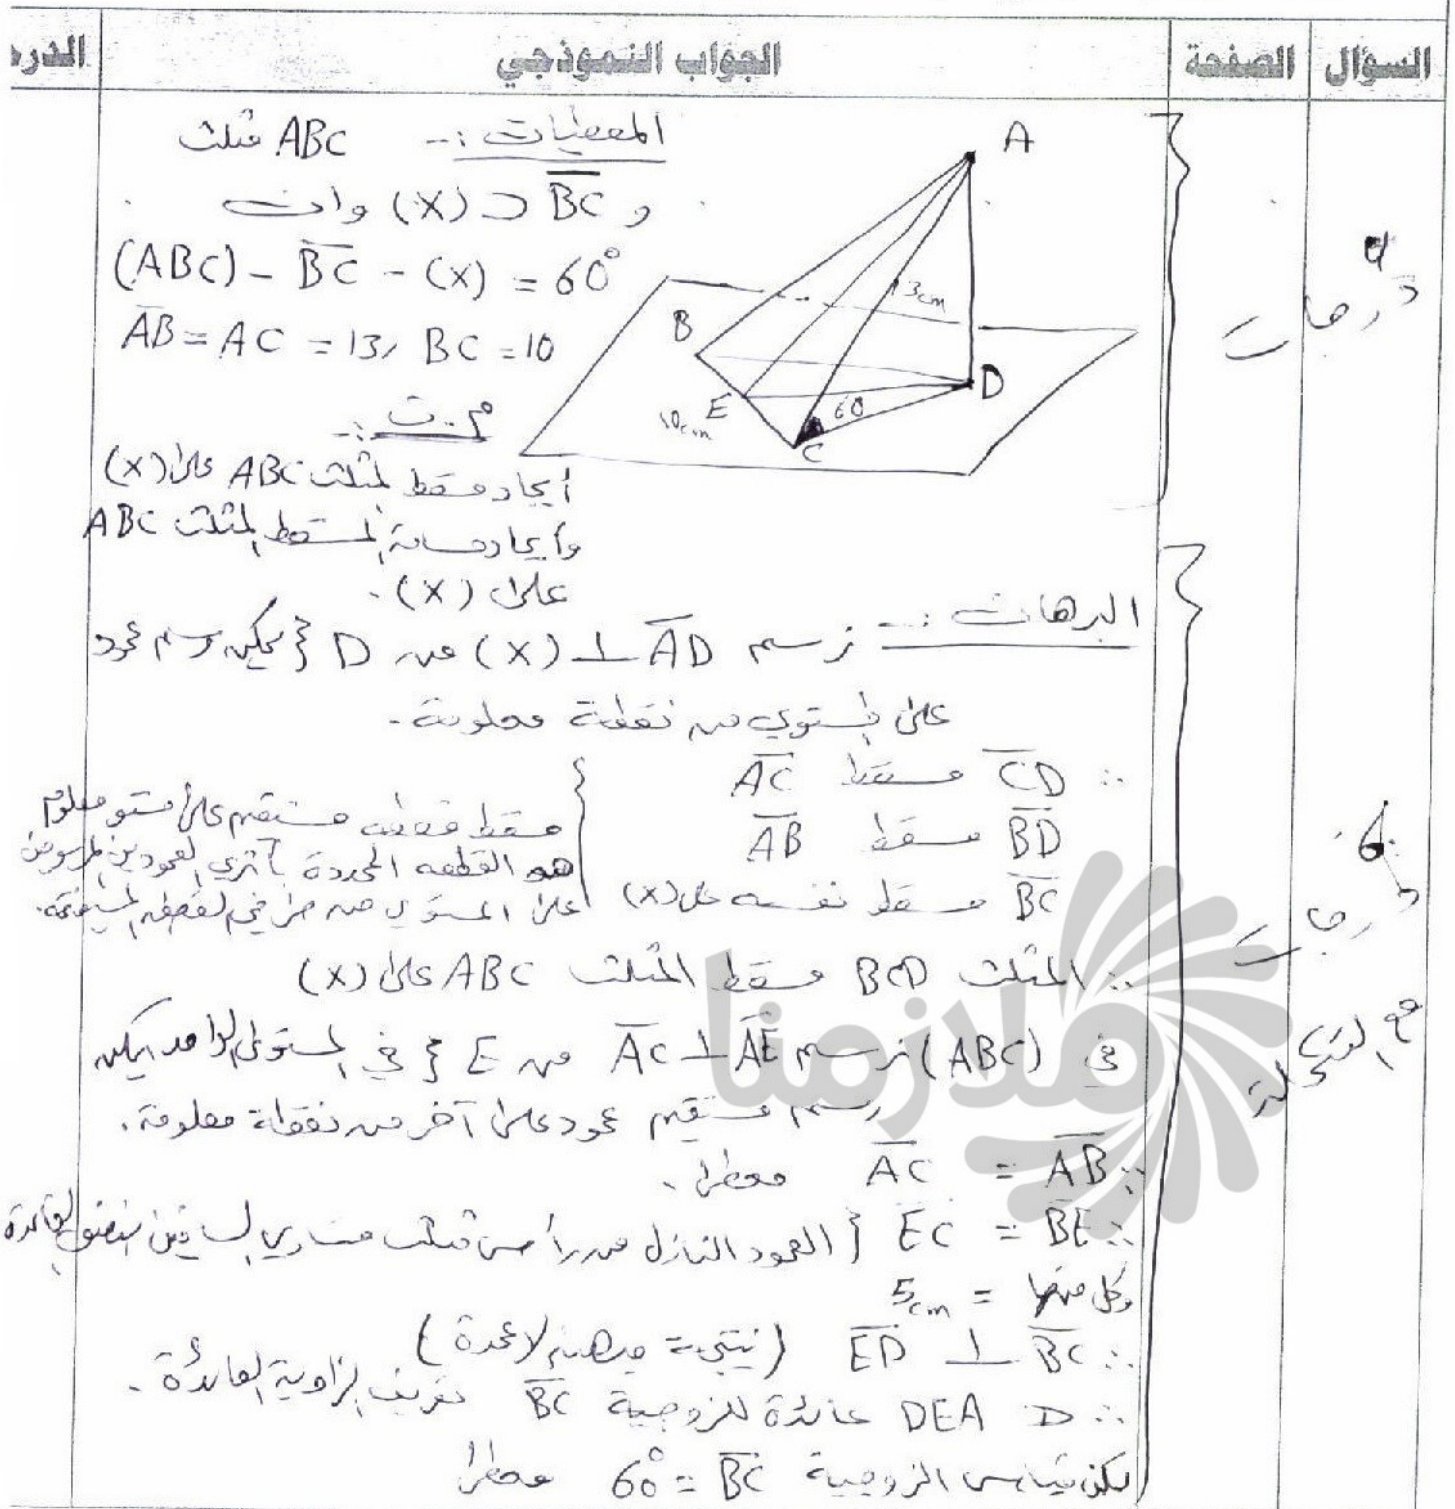 السؤال الصفحة الجواب النموذجي
المعطيات :- ABC مثلث
و BC ⊂ (X) وان
(ABC) - BC - (X) = 60°
AB = AC = 13, BC = 10
A
B
13cm
D
E
60
10cm
C
م.ث :-
أيجاد مسقط المثلث ABC على (X)
وأيجاد مساحة المسقط المثلث ABC
على (X).
البرهان :- نرسم AD ⊥ (X) من D { يمكن رسم عمود
على المستوي من نقطة معلومة.
∴ CD مسقط AC
BD مسقط AB
BC مسقط نفسه على (X)
مسقط قطعة مستقيم على مستو معلوم
هو القطعة المحددة بأثري العمودين المرسومين
على المستوي من طرفي القطعة المستقيمة.
∴ المثلث BCD مسقط المثلث ABC على (X)
في (ABC) نرسم AE ⊥ AC من E { في المستوى الواحد يمكن
رسم مستقيم عمود على آخر من نقطة معلومة.
∵ AB = AC معطى.
∴ BE = EC { العمود النازل من رأس مثلث متساوي الساقين ينصف القاعدة
وكل منهما = 5cm
∴ ED ⊥ BC (نتيجة مبرهنة الاعمدة)
∴ DEA عائدة للزوجية BC تعريف الزاوية العائدة.
لكن قياس الزوجية BC = 60° معطى
درجات
6 درجات
ملازمنا